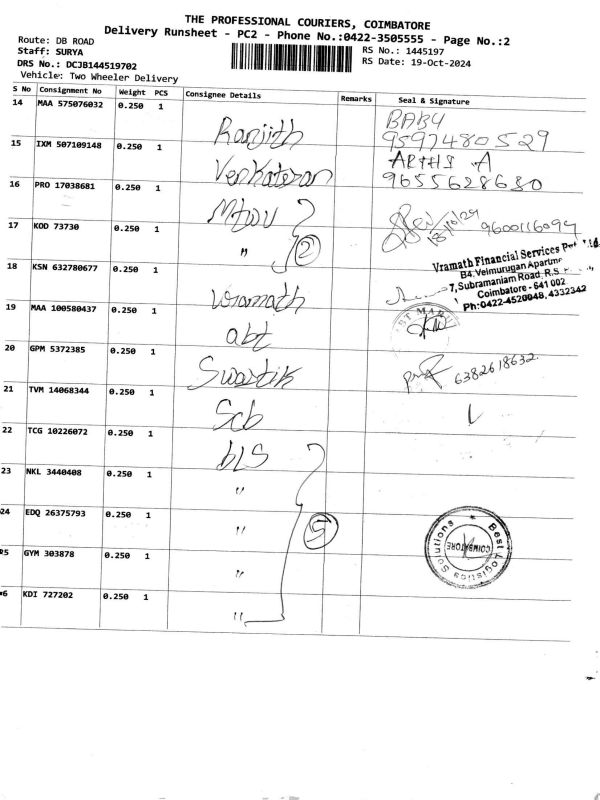 THE PROFESSIONAL COURIERS, COIMBATORE
Delivery Runsheet - PC2 - Phone No.:0422-3505555 - Page No.:2
Route: DB ROAD
RS No.: 1445197
Staff: SURYA
RS Date: 19-Oct-2024
DRS No.: DCJB144519702
Vehicle: Two Wheeler Delivery
S No Consignment No Weight PCS Consignee Details Remarks Seal & Signature
14 MAA 575076032 0.250 1 Ranjith BABU 9597480529
15 IXM 507109148 0.250 1 Venkatesan ARTHI A 9655628630
16 PRO 17038681 0.250 1 18/10/24 9600116094
17 KOD 73730 0.250 1 " 2
18 KSN 632780677 0.250 1 Vramath
Vramath Financial Services Pvt Ltd.
B4, Velmurugan Apartme
7, Subramaniam Road, R.S
Coimbatore - 641 002
Ph:0422-4520048, 4332342
19 MAA 100580437 0.250 1 abt
20 GPM 5372385 0.250 1 Swastik 6382618632
21 TVM 14068344 0.250 1 Scb
22 TCG 10226072 0.250 1 bLS
23 NKL 3440408 0.250 1 "
24 EDQ 26375793 0.250 1 " 5
Best Logistics Solutions
COIMBATORE
25 GYM 303878 0.250 1 "
26 KDI 727202 0.250 1 "